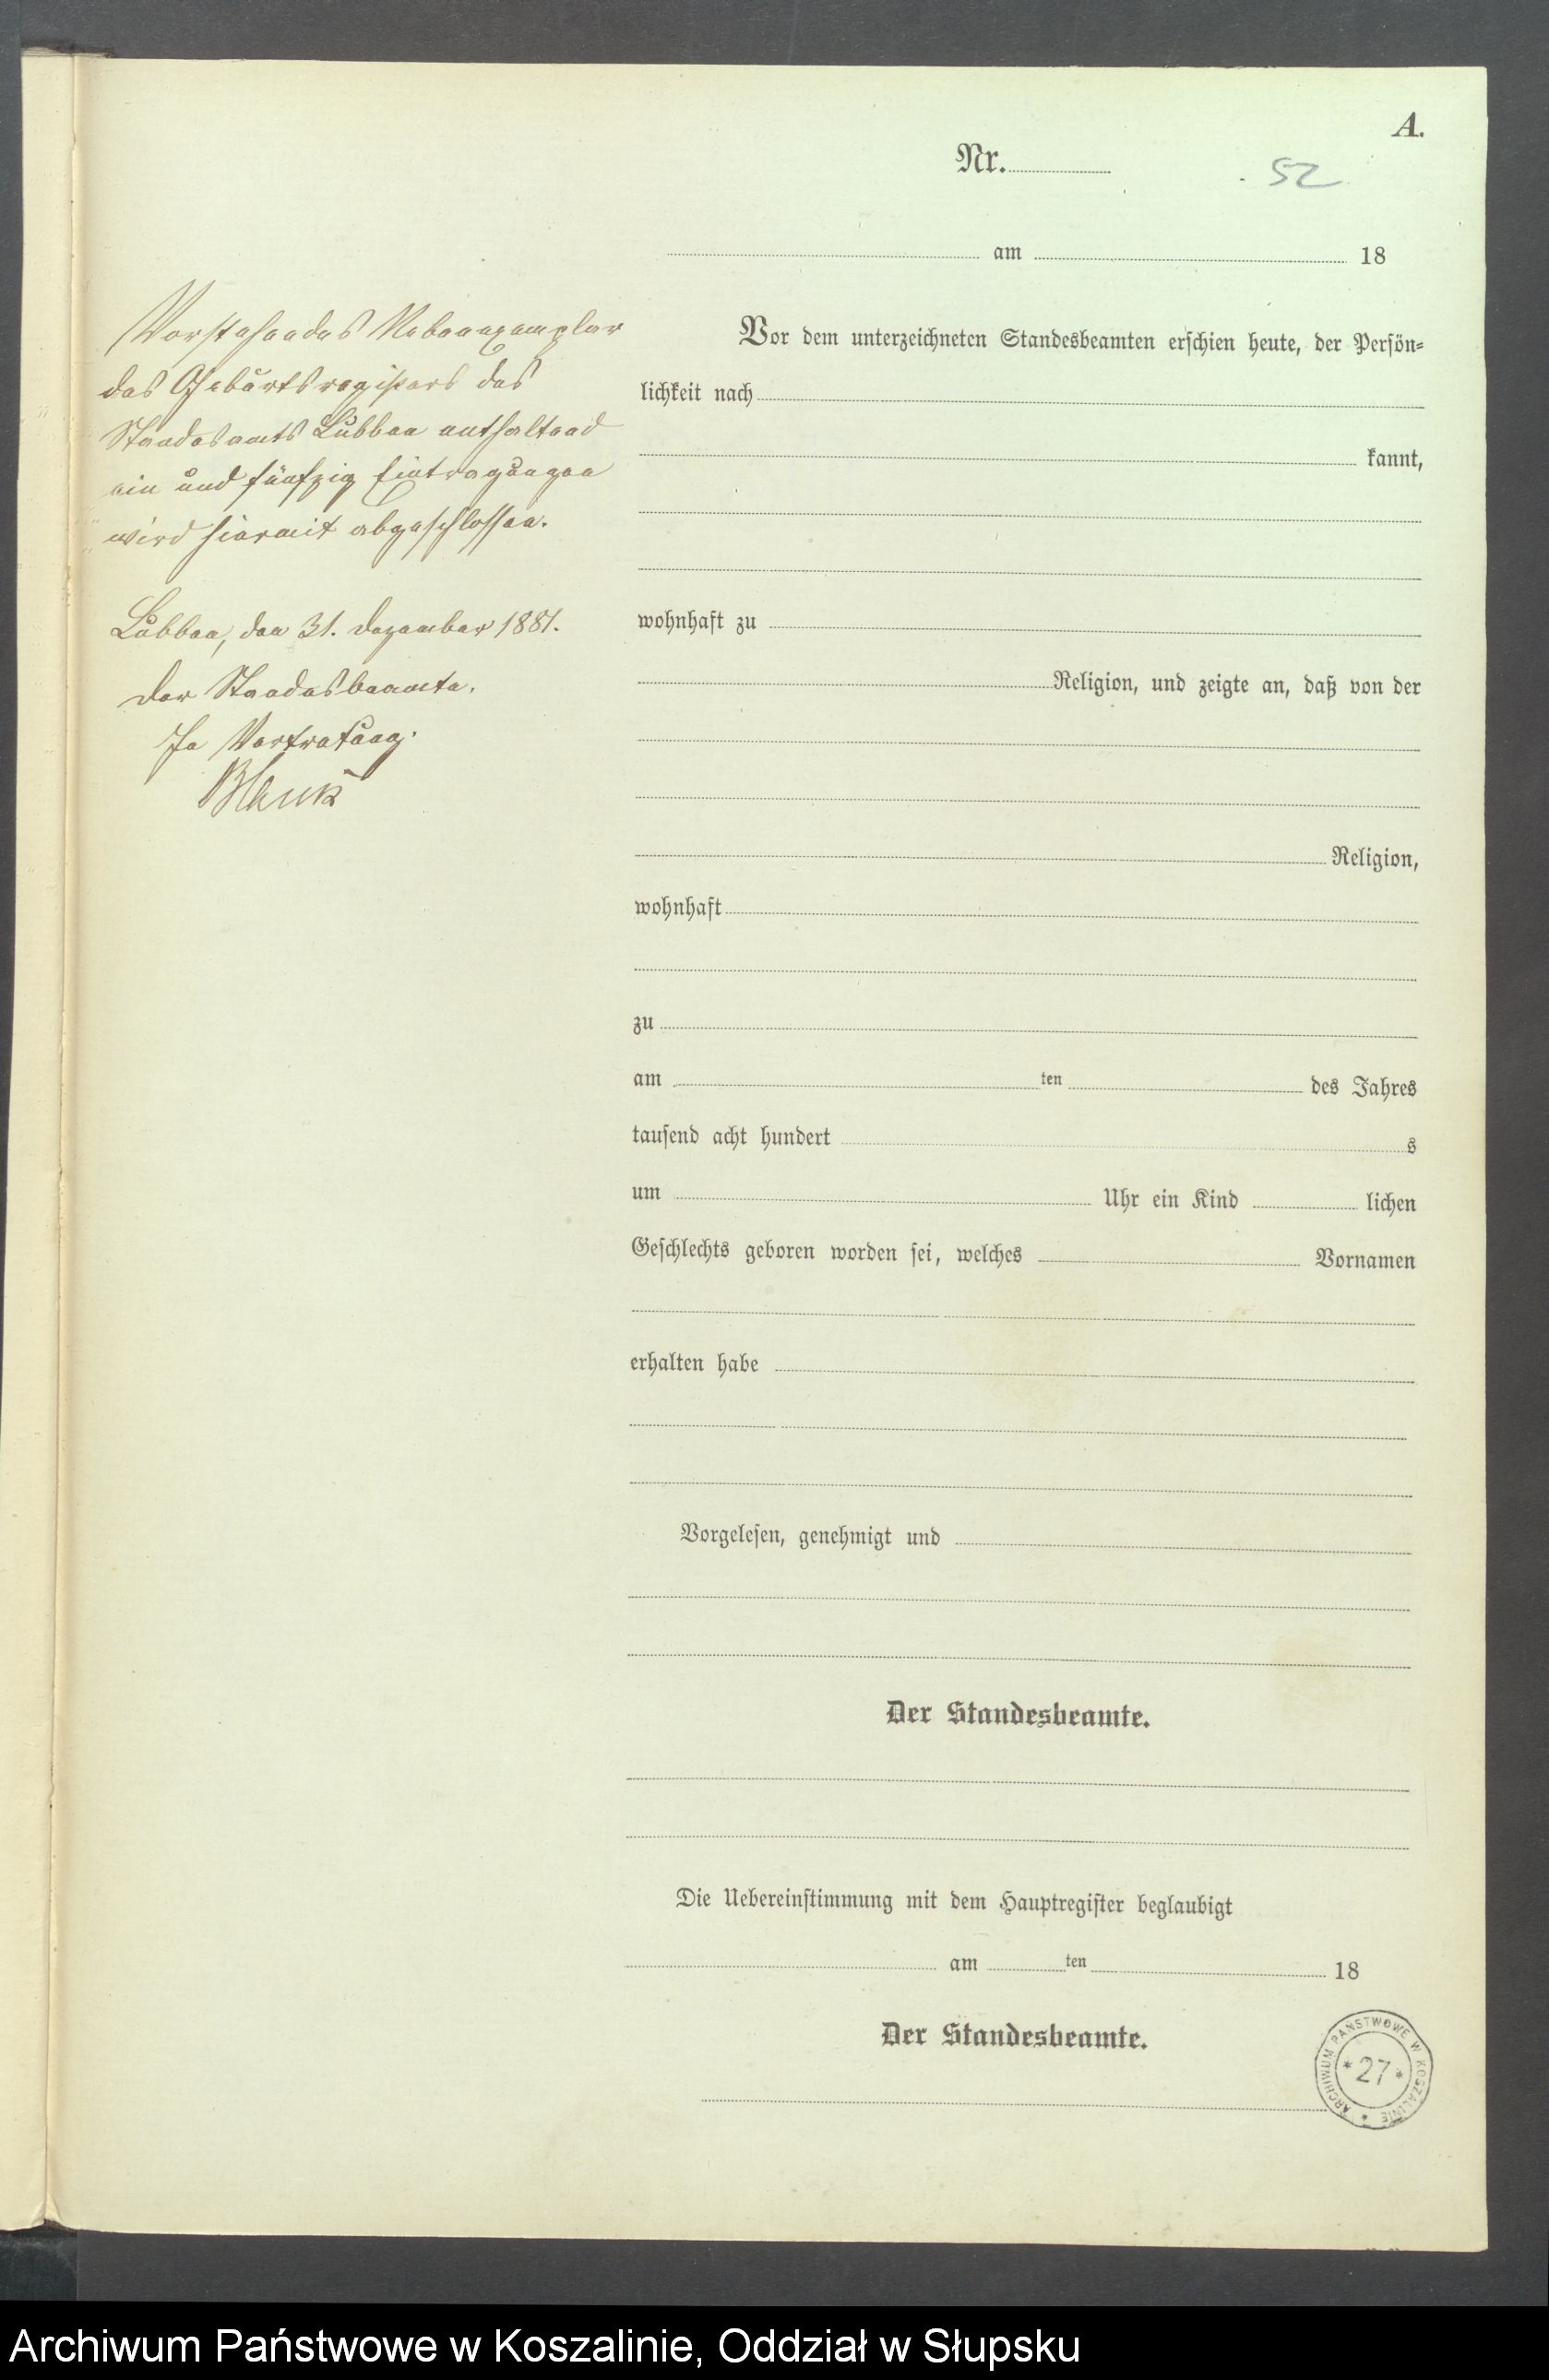 A.
Nr.
52
am 18
Vorstehendes Nebenexemplar
des Geburtsregisters des
Standesamts Lübben enthaltend
ein und fünfzig Eintragungen
wird hiermit abgeschlossen.
Lübben, den 31. Dezember 1881.
Der Standesbeamte.
In Vertretung.
Blauk
Vor dem unterzeichneten Standesbeamten erschien heute, der Persön=
lichkeit nach
kannt,
wohnhaft zu
Religion, und zeigte an, daß von der
Religion,
wohnhaft
zu
am ten des Jahres
tausend acht hundert s
um Uhr ein Kind lichen
Geschlechts geboren worden sei, welches Vornamen
erhalten habe
Vorgelesen, genehmigt und
Der Standesbeamte.
Die Uebereinstimmung mit dem Hauptregister beglaubigt
am ten 18
Der Standesbeamte.
ARCHIWUM PAŃSTWOWE W KOSZALINIE
* 27 *
Archiwum Państwowe w Koszalinie, Oddział w Słupsku